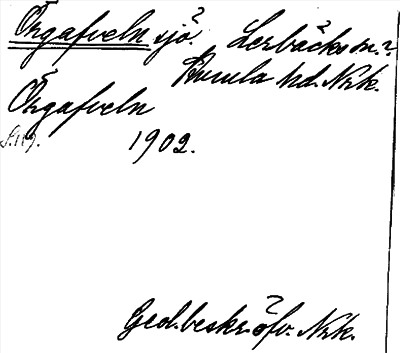 Örgafveln sjö. Lerbäcks sn.?
Kumla hd. Nrk.
Örgafveln
S. 119. 1902.
Geol. beskr. öfv. Nrk.